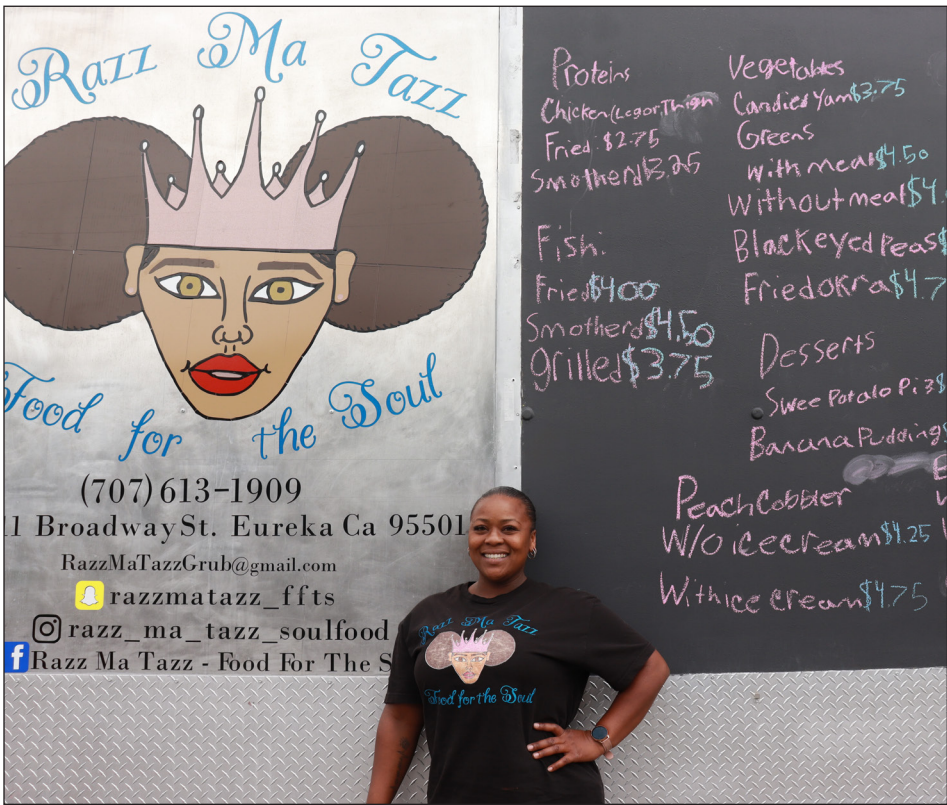 Razz Ma Tazz
Food for the Soul
(707) 613-1909
11 Broadway St. Eureka Ca 95501
RazzMaTazzGrub@gmail.com
razzmatazz_ffts
razz_ma_tazz_soulfood
Razz Ma Tazz - Food For The S
Proteins
Chicken (Leg or Thigh
Fried: $2.75
Smotherd $3.25
Fish:
Fried $4.00
Smotherd $4.50
grilled $3.75
Vegetables
Candied Yam $3.75
Greens
with meat $4.50
Without meat $4.
Blackeyed Peas $
Fried Okra $4.7
Desserts
Swee Potato Pi3 $
Banana Pudding $
Peach Cobbler
W/O ice cream $4.25
With ice cream $4.75
Razz Ma Tazz
Food for the Soul